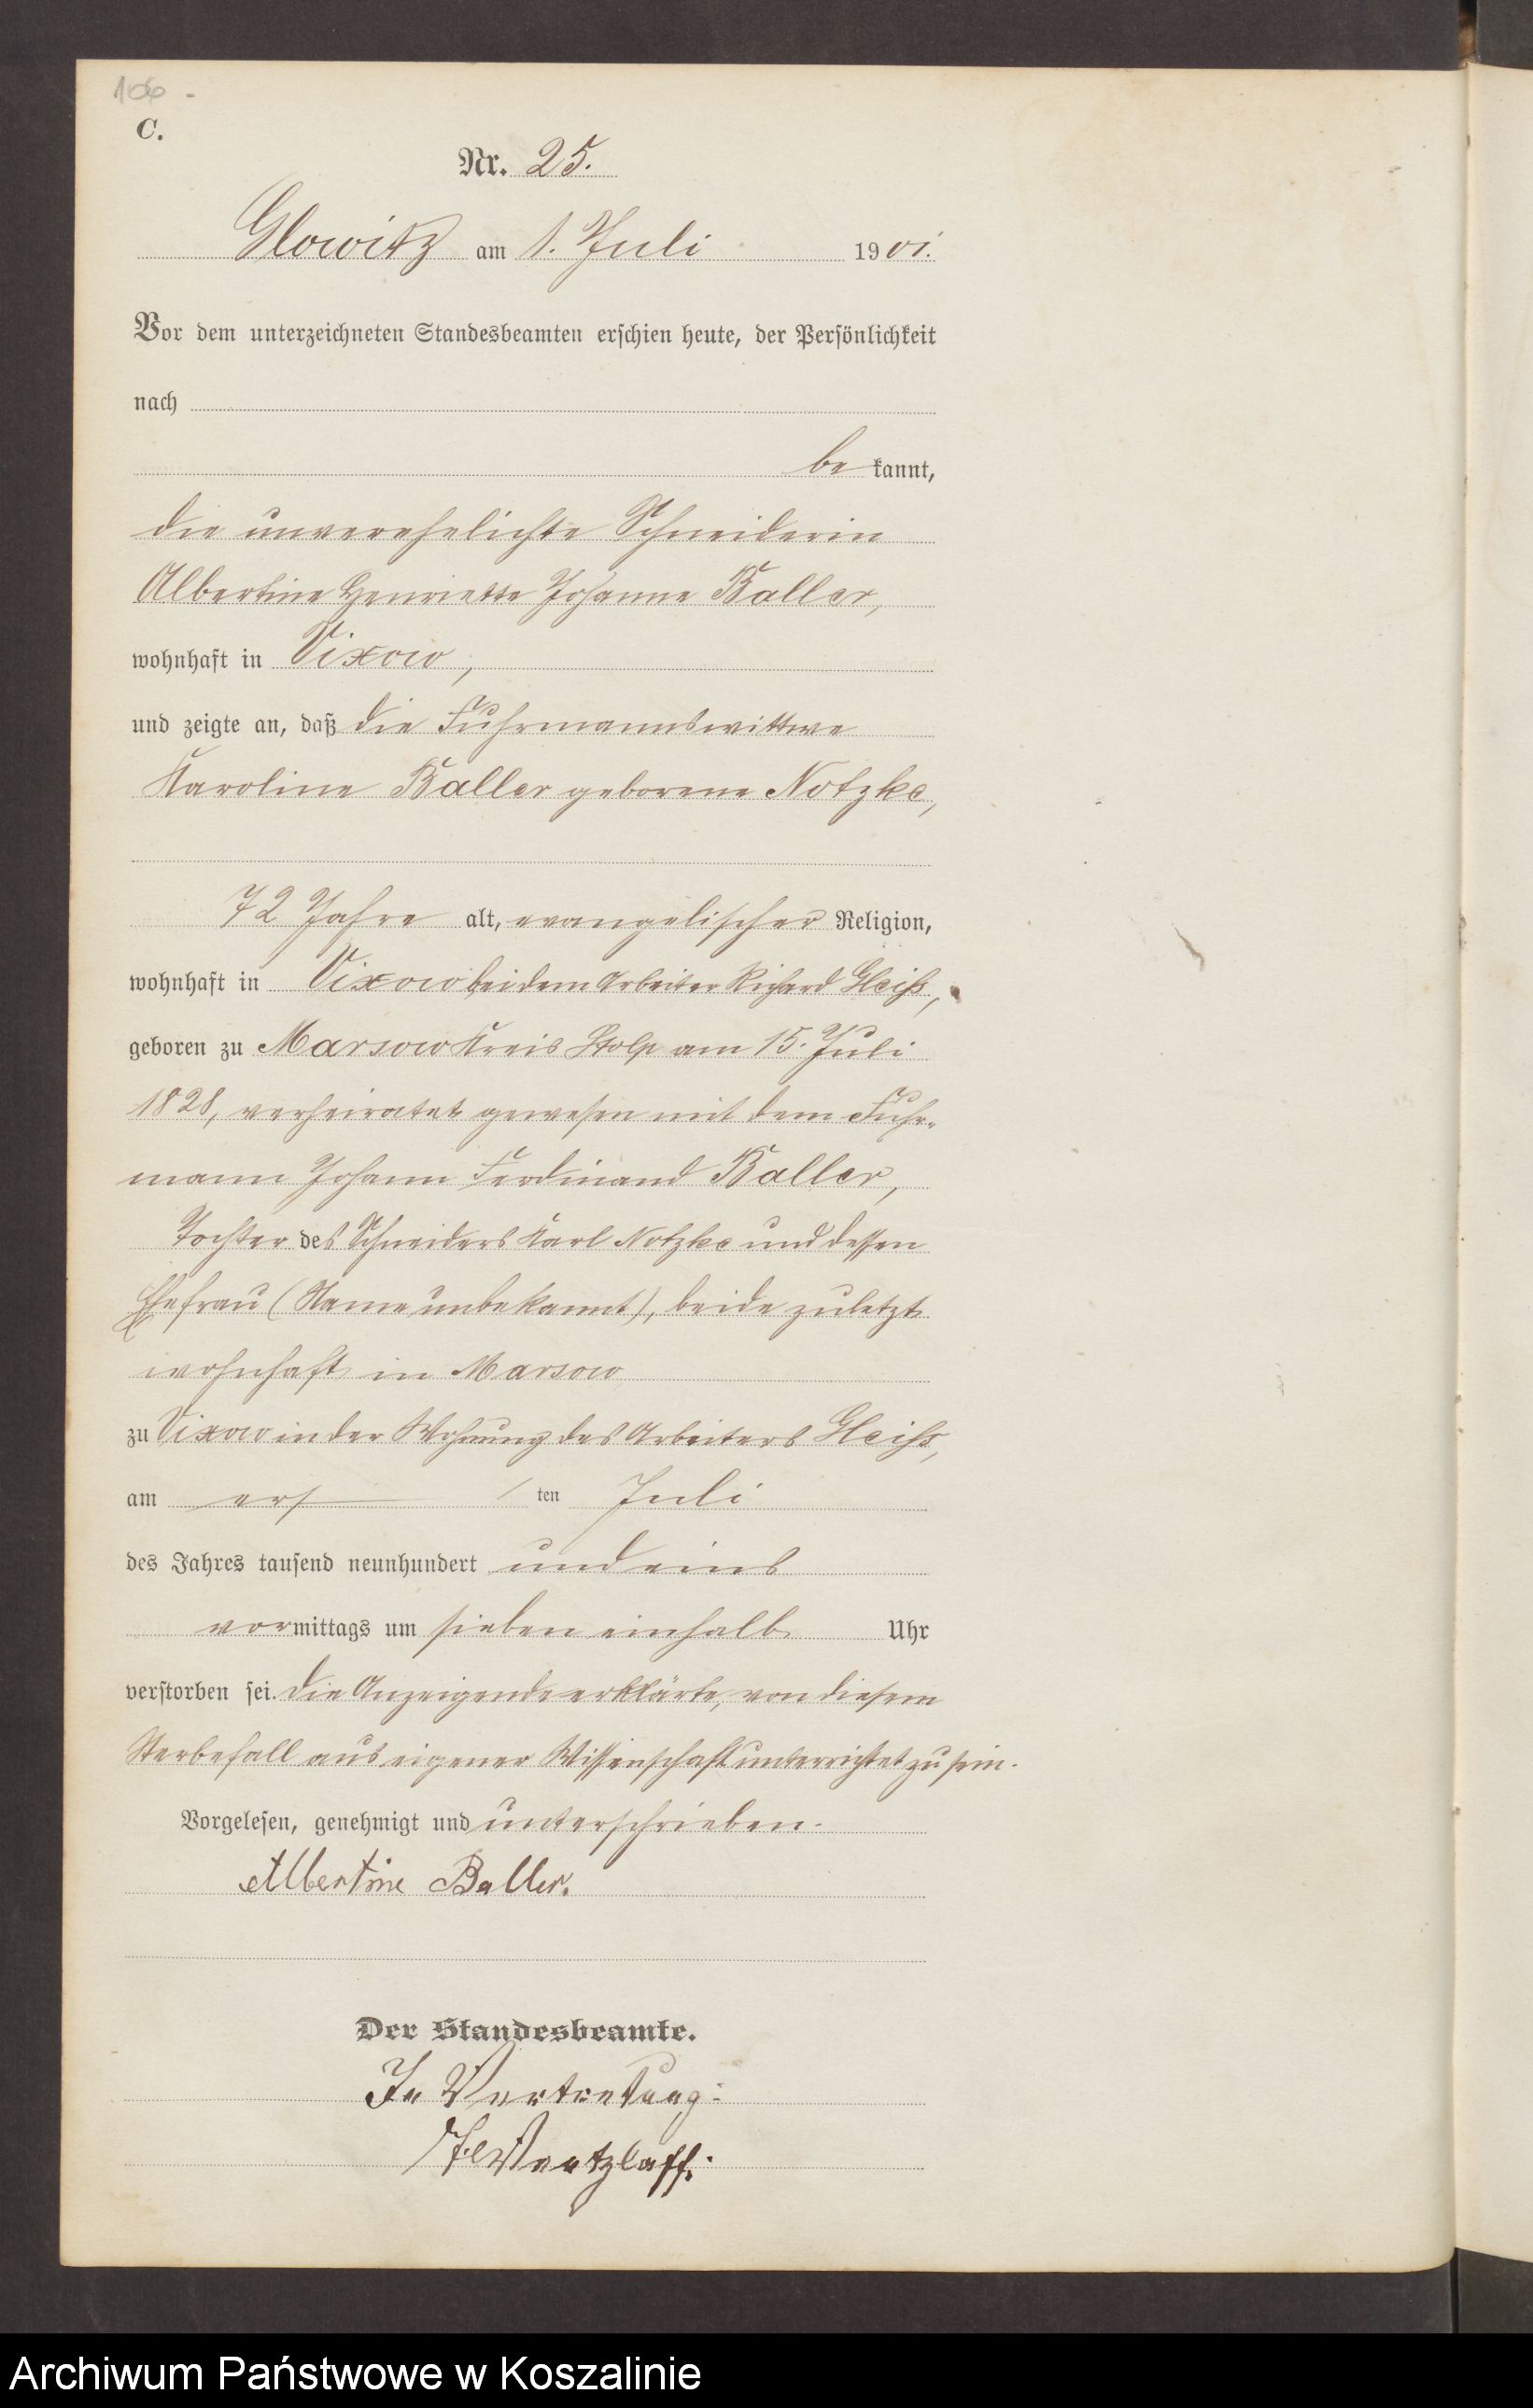 106 -
C.
Nr. 25.
Glowitz am 1. Juli 1901.
Vor dem unterzeichneten Standesbeamten erschien heute, der Persönlichkeit
nach
be kannt,
die unverehelichte Schneiderin
Albertine Henriette Johanne Baller,
wohnhaft in Vixow,
und zeigte an, daß die Fuhrmannswittwe
Karoline Baller geborene Notzke,
72 Jahre alt, evangelischer Religion,
wohnhaft in Vixow bei dem Arbeiter Richard Gleiß,
geboren zu Marsow Kreis Stolp am 15. Juli
1828, verheiratet gewesen mit dem Fuhr-
mann Johann Ferdinand Baller,
Tochter des Schneiders Karl Notzke und dessen
Ehefrau (Name unbekannt), beide zuletzt
wohnhaft in Marsow
zu Vixow in der Wohnung des Arbeiters Gleiß,
am ers ten Juli
des Jahres tausend neunhundert und eins
vormittags um sieben einhalb Uhr
verstorben sei. Die Anzeigende erklärte, von diesem
Sterbefall aus eigener Wissenschaft unterrichtet zu sein.
Vorgelesen, genehmigt und unterschrieben.
Albertine Baller.
Der Standesbeamte.
In Vertretung:
Ventzlaff.
Archiwum Państwowe w Koszalinie